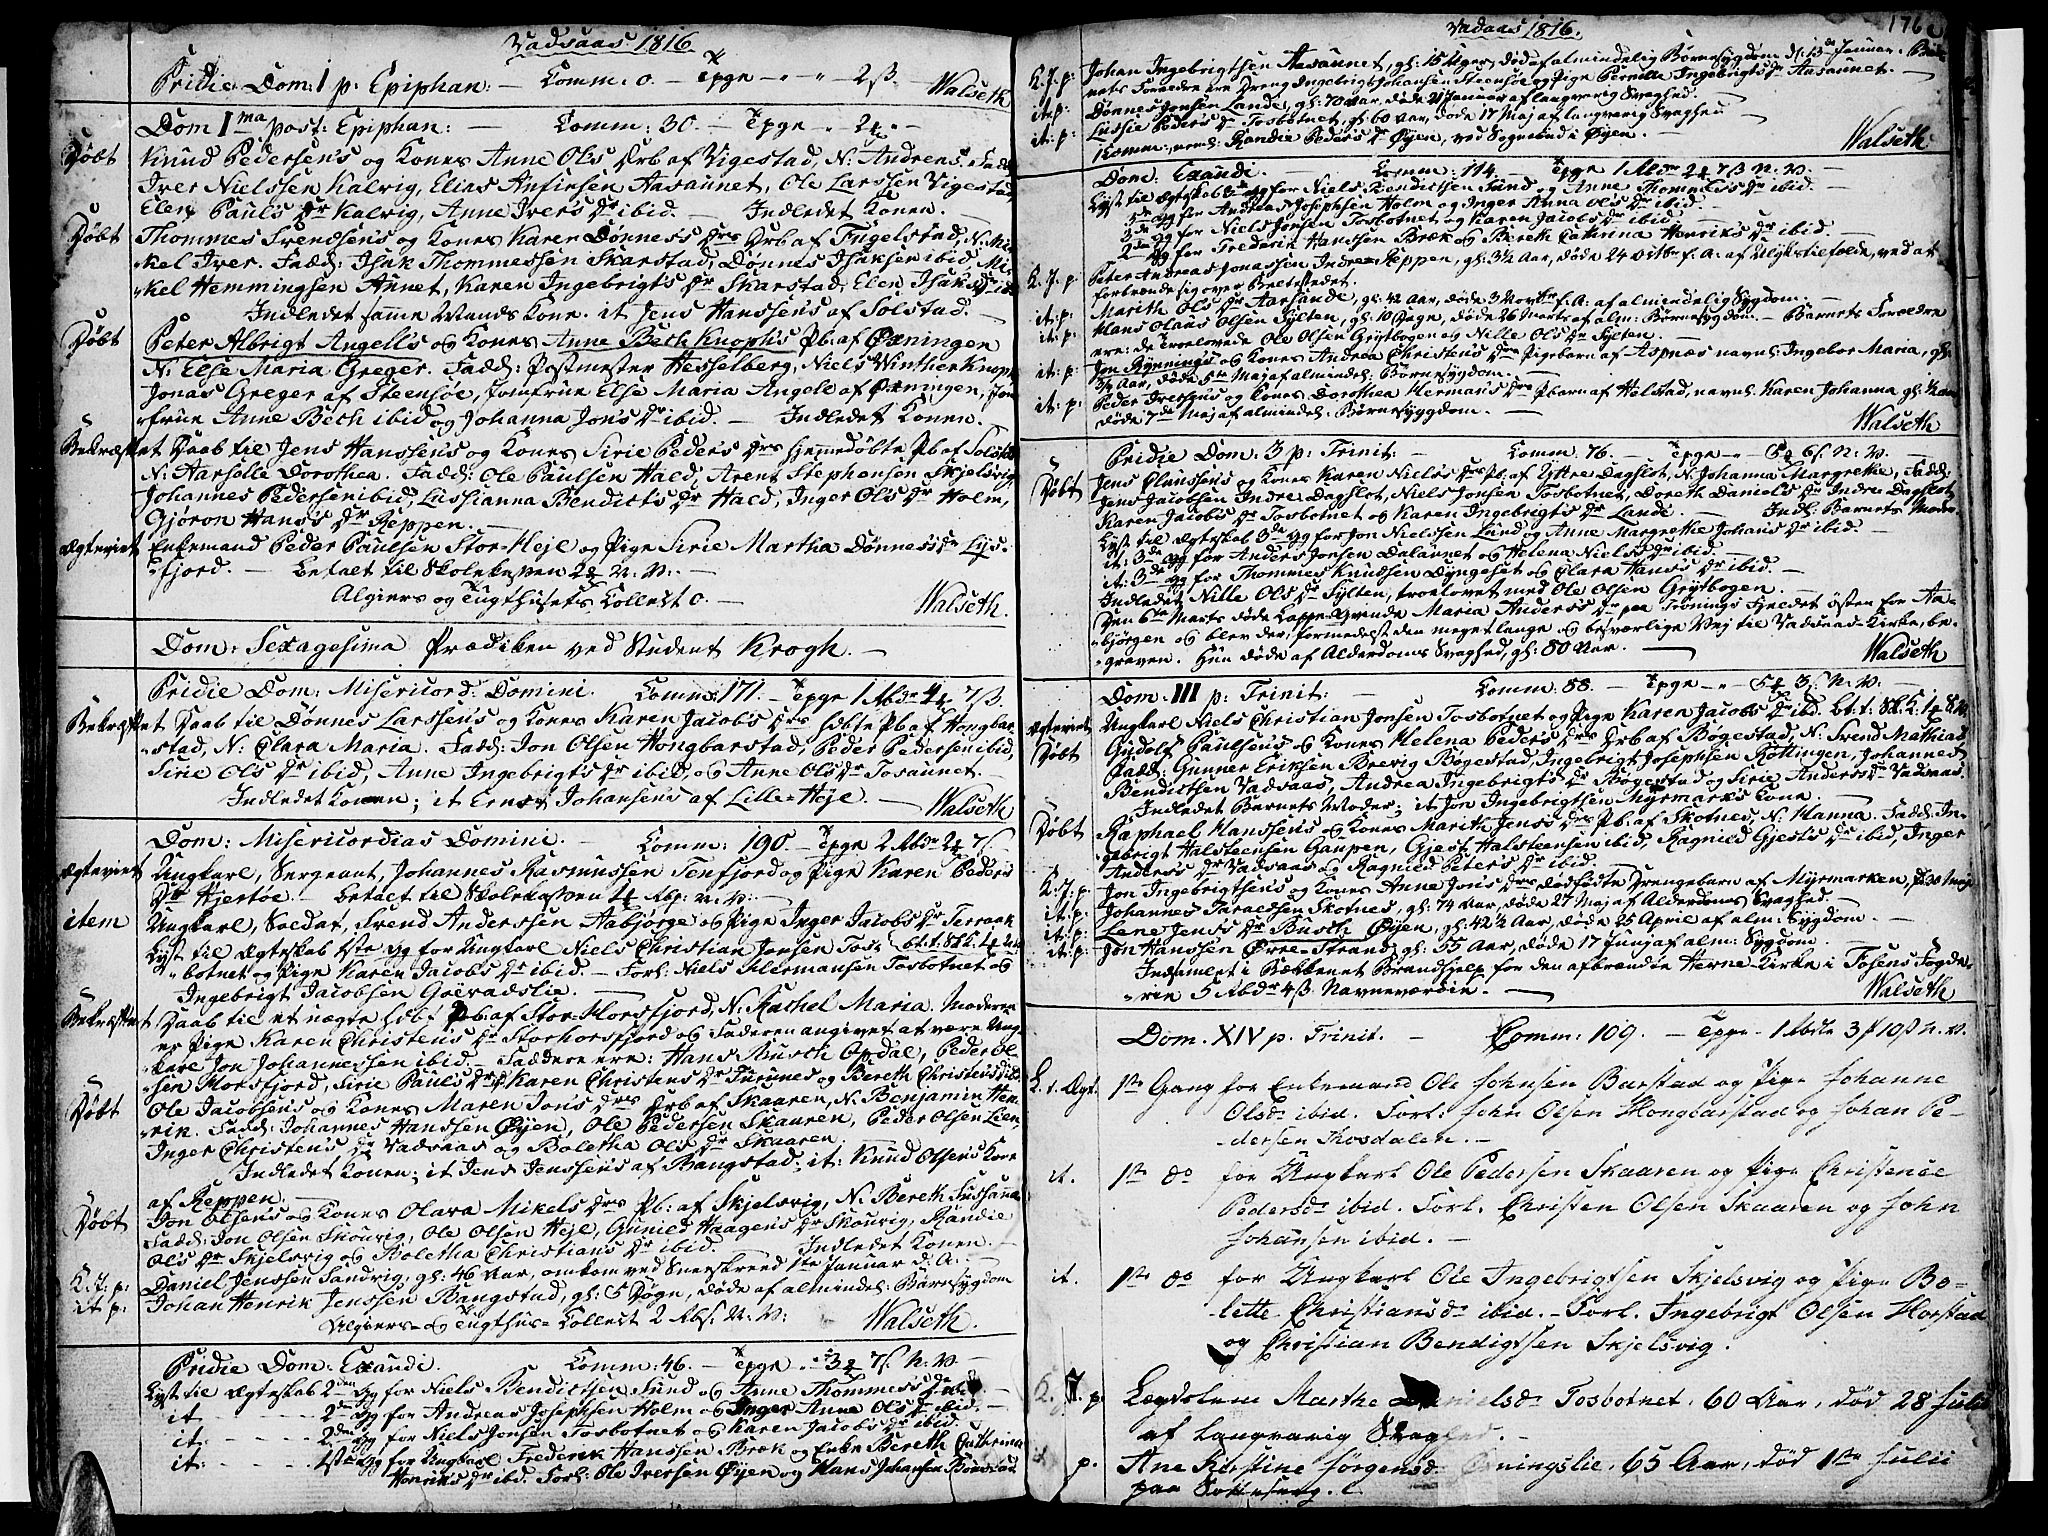 Vadsaas 1816
Pridie Dom: 1 p: Epiphan: — Comm: 0. — Tpge — " — " — 2 ß. Walseth
Dom 1ma post: Epiphan: — Comm: 30. — Tpge
Døbt Knud Pedersens og Kones Anne Ols Dr Drb af Vigestad, N: Andreas. Fadd:
Iver Nielssen Kalvig, Elias Anfinsen Aasaunet, Ole Larssen Vigestad,
Elen Pauls Dr Kalvig, Anne Ivers Dr ibid. — Indledet Konen. —
Døbt Thommes Svendsens og Kones Karen Dønness Drs Drb af Fugelstad, N: Mi-
kel Iver. Fadd: Isak Thommessen Skarstad, Dønnes Isaksen ibid, Mi-
kel Hemmingsen Aunet, Karen Ingebrigts Dr Skarstad, Elen Isaks Dr ibid
Indledet samme Mands Kone. it Jens Hanssens af Solstad. —
Døbt Peter Albrigt Angells og Kones Anne Beth Knophs Pb: af Øxningen
N: Else Maria Greger. Fadd: Postmester Hesselberg, Niels Winther Knoph
Jonas Greger af Steensøe, Jomfrue Else Maria Angell af Øxningen, Jom-
frue Anne Beth ibid og Johanna Jons Dr ibid. — Indledet Konen. —
Bekræftet Daab til Jens Hanssens og Kones Sirie Peders Drs hjemedøbte Pb af Solstad
N: Aarsolle Dorothea. Fadd: Ole Paulsen Hald, Arent Stephansen Skjelsvig,
Johannes Pedersen ibid, Lussianna Bendicts Dr Hald, Inger Ols Dr Holm,
Gjøron Hans's Dr Reppen. —
Ægteviet Enkemand Peder Paulsen Stor-Heje og Pige Sirie Martha Dønness Dr Lys-
fjord. — Betalt til Skolekassen
Algiers og Tugthusets Collect 0. — Walseth.
Dom: Sexagesima Prædiken ved Student Krogh. —
Pridie Dom: Misericord: Domini. Comm: 171. — Tpge 1 Rbdr
Bekræftet Daab til Dønnes Larssens og Kones Karen Jacobs Drs hdbte Pb af Hongbar-
stad, N: Clara Maria. Fadd: Jon Olsen Hongbarstad, Peder Pedersen ibid,
Sirie Ols Dr ibid, Anne Ingebrigts Dr ibid, og Anne Ols Dr Tosaunet. —
Indledet Konen; it Ernst Johansens af Lille-Heje. — Walseth
Dom: Misericordias Domini. — Comm: 190. — Tpge 2 Rbdr
Ægteviet Ungkarl, Sergeant, Johannes Rasmussen Tenfjord og Pige Karen Peders
Dr Hjertøe. — Betalt til Skolekassen
item Ungkarl, Soldat, Svend Anderssen Aabjørge og Pige Inger Jacobs Dr Terraak
Lyst til Ægteskab 1ste Gg for Ungkarl Niels Christian Jonsen Tos-
botnet og Pige Karen Jacobs Dr ibid. — Forl: Niels Hermansen Tosbotnet og
Ingebrigt Jacobsen Goivadslie. —
Bekræftet Daab til et uægte hdbt Pb: af Stor-Horsfjord, N: Rachel Maria. Moderen
er Pige Karen Christens Dr Storhorsfjord og Faderen angivet at være Ung-
karl Jon Johannessen ibid. — Fadderne ere: Hans Busch Opdal, Peder Ol-
sen Horsfjord, Sirie Pauls Dr, Karen Christens Dr Turunes og Bereth Christens Dr ibid
Døbt Ole Jacobsens og Kones Maren Jons Drs Drb af Skaaren, N: Benjamin Hen-
rik. Fadd: Johannes Hanssen Øyen, Ole Pedersen Skaaren, Peder Olsen Lien,
Inger Christens Dr Vadsaas og Boletha Ols Dr Skaaren.
Indledet Konen; it Jens Jenssens af Bangstad; it: Knud Olsens Kone
af Reppen.
Døbt Jon Olsens og Kones Olava Mikels Drs Pb: af Skjelsvig, N: Bereth Sussanna
Fadd: Jon Olsen Skouvig, Ole Olsen Heje, Gunild Haagens Dr Skouvig, Randie
Ols Dr Skjelsvig og Boletha Christians Dr ibid. Indledet Konen. —
K. J. p: Daniel Jenssen Sandvig, gl: 46 Aar, omkom ved Sneeskreed 1ste Januar d: A. —
it p: Johan Henrik Jenssen Bangstad, gl: 5 Døgn, døde af almindel: Børnesygdom
Algiers- og Tugthus- Collect 2 Rbs: N: V: Walseth.
Pridie Dom: Exaudi. Comm: 46. — Tpge
Lyst til Ægteskab 2den Gg for Niels Bendictsen Sund og Anne Thommess Dr ibid. —
it — 2den Gg for Andreas Josephsen Holm og Inger Anne Ols Dr ibid. —
it: — 2den Gg for Niels Jonsen Tosbotnet og Karen Jacobs Dr ibid.
it: — 1ste Gg for Ungkarl Frederik Hanssen Bræk og Enke Bereth Cathrina
Henriks Dr ibid. Forl: Ole Iversen Øyen og Hans Johansen
Vadsaas 1816. 176
K. J. p: Johan Ingebrigtsen Aasaunet, gl: 15 Uger, døde af almindelig Børnesygdom d: 13de Januar. Bar-
nets Foreldre ere Dreng Ingebrigt Johansen Steensøe og Pige Pernille Ingebrigts Dr Aasaunet. —
it p: Dønnes Jonsen Lande, gl: 70 Aar, døde 21 Januar af langvarig Svaghed.
it: p: Lussie Peders Dr Tosbotnet, gl: 60 Aar, døde 17 Maj af langvarig Svaghed
Komm: Randie Peders Dr Øyen, ved Sognebud i Øyen. — Walseth.
Dom: Exaudi. — Comm: 114. — Tpge 1 Rbdr
Lyst til Ægteskab 3de Gg for Niels Bendictsen Sund og Anne Thommess Dr ibid.
3de Gg for Andreas Josephsen Holm og Inger Anna Ols Dr ibid. —
3de Gg for Niels Jonsen Tosbotnet og Karen Jacobs Dr ibid.
2den Gg for Frederik Hanssen Bræk og Bereth Cathrina Henriks Dr ibid. —
K. J. p. Peter Andreas Jonassen Indre-Reppen, gl: 3½ Aar, døde 24 Octbr f. A: af Ulykkestilfælde, ved at
forbrænde sig over Beltestedet.
it: p: Marith Ols Dr Aarsande, gl: 42 Aar, døde 3 Novbr f. A: af almindelig Sygdom. —
it: p: Hans Olaus Olsen Sylten, gl: 10 Dage, døde 26 Marts af alm: Børnesygdom. — Barnets Foreldre
ere: de trolovede Ole Olsen Grytbogen og Nille Ols Dr Sylten. —
it: p: Jon Rynnings og Kones Andrea Christens Drs Pigebarn af Aspnæs navnl: Ingebor Maria, gl:
Aar, døde 5te Maj af almindel: Børnesygdom. —
it: p: Peder Iverssens og Kones Dorothea Hermans Drs Pbarn af Helstad, navnl: Karen Johanna gl:
døde 7de Maj af almindel: Børnesygdom. — Walseth
Pridie Dom: 3 p: Trinit: — Comm: 76. — Tpge
Døbt Jens Clausens og Kones Karen Niels Drs Pb: af Yttre Dagslot, N: Johanna Margrethe, Fadd:
Jens Jacobsen Indre Dagslot, Niels Jonsen Tosbotnet, Doreth Daniels Dr Indre Dagslot,
Karen Jacobs Dr Tosbotnet og Karen Ingebrigts Dr Lande. — Indl: Barnets Moder.
Lyst til Ægteskab 3de Gg for Jon Nielssen Lund og Anne Margrethe Johans Dr ibid. —
it: 3de Gg for Anders Jonsen Dalaunet og Helena Niels Dr ibid. —
it: 3de Gg for Thommes Knudsen Dyngeset og Clara Hans's Dr ibid. —
Indledet Nille Ols Dr Sylten, troelovet med Ole Olsen Grytbogen.
Den 6te Marts døde Lappe Qvinde Maria Anders's Dr paa Tronings Fjeldet østen for Aa-
bjørgen og blev der, formedelst den meget lange og besværlige Vej til Vadsaas Kirke, be-
graven. Hun døde af Alderdoms Svaghed, gl: 80 Aar. — Walseth
Dom. III p: Trinit: — Comm: 88. — Tpge
Ægteviet Ungkarl Niels Christian Jonsen Tosbotnet og Pige Karen Jacobs Dr ibid.
Døbt Gudolf Paulsens og Kones Helena Peders Drs Drb af Bøgestad, N: Svend Mathias
Fadd: Gunner Eriksen Brevig Bøgestad, Ingebrigt Josephsen Røttingen, Johannes
Bendictsen Vadsaas, Andrea Ingebrigts Dr Bøgestad og Sirie Anders's Dr Vadsaas.
Indledet Barnets Moder; it Jon Ingebrigtsen Myrmarks Kone. —
Døbt Raphael Hanssens og Kones Marith Jens's Drs Pb. af Skotnes, N: Hanna. Fadd: In-
gebrigt Halsteensen Gaupen, Gjest Halsteensen ibid, Ragnild Gjests Dr ibid, Inger
Anders's Dr Vadsaas og Ragnild Peters Dr ibid.
K. J. p. Jon Ingebrigtsens og Kones Anne Jons Drs dødfødte Drengebarn af Myrmarken,
it: p: Johannes Taraldsen Skotnes, gl: 74 Aar, døde 27 Maj af Alderdoms Svaghed.
it: p: Lene Jens's Dr Busch Øyen, gl: 42½ Aar, døde 25 April af alm: Sygdom. —
it: p: Jon Hanssen Øvre-Strand, gl: 55 Aar, døde 17 Junj af alm: Sygdom. —
Indsamlet i Bækkenet Brandhjelp for den afbrændte Herne-Kirke i Fosens Fogde-
rie 5 Rbdr 4 ß Navneværdie. — Walseth
Dom. XIV p. Trinit. — Comm: 109. — Tpge — 1 Rbdlr
L. t. Ægt. 1ste Gang for Enkemand Ole Johnsen Barstad og Pige Johanne
Olsdr ibid. Forl. John Olsen Hongbarstad og Johan Pe-
dersen Thosdalen. —
it. 1ste do for Ungkarl Ole Pedersen Skaaren og Pige Christence
Pedersdr ibid. Forl. Christen Olsen Skaaren og John
Johansen ibid. —
it. 1ste do for Ungkarl Ole Ingebrigtsen Skjelsvig og Pige Bo-
lette Christiansdr ibid. — Forl. Ingebrigt Olsen Horstad
og Christian Bendigtsen Skjelsvig.
K. J. p. Lægdslem Marthe Danielsdr Tosbotnet, 60 Aar, død 28 Julii
af langvarig Svaghed. —
p. Ane Kirstine Jørgensdr 65 Aar, død 1ste Julii
paa